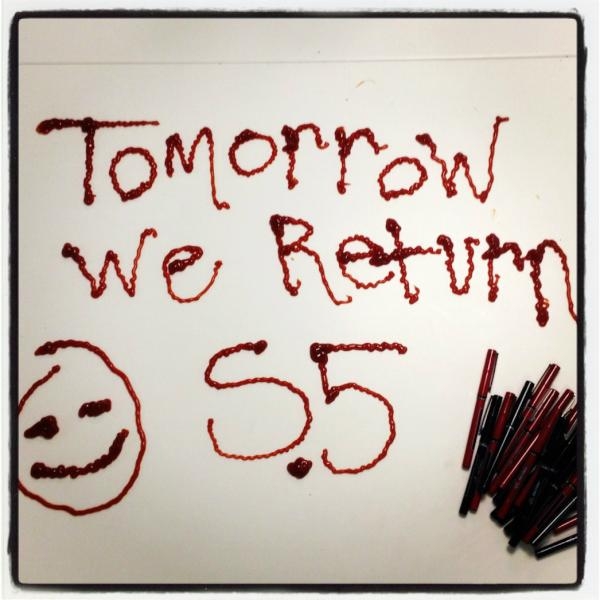 Tomorrow
we Return
S.5